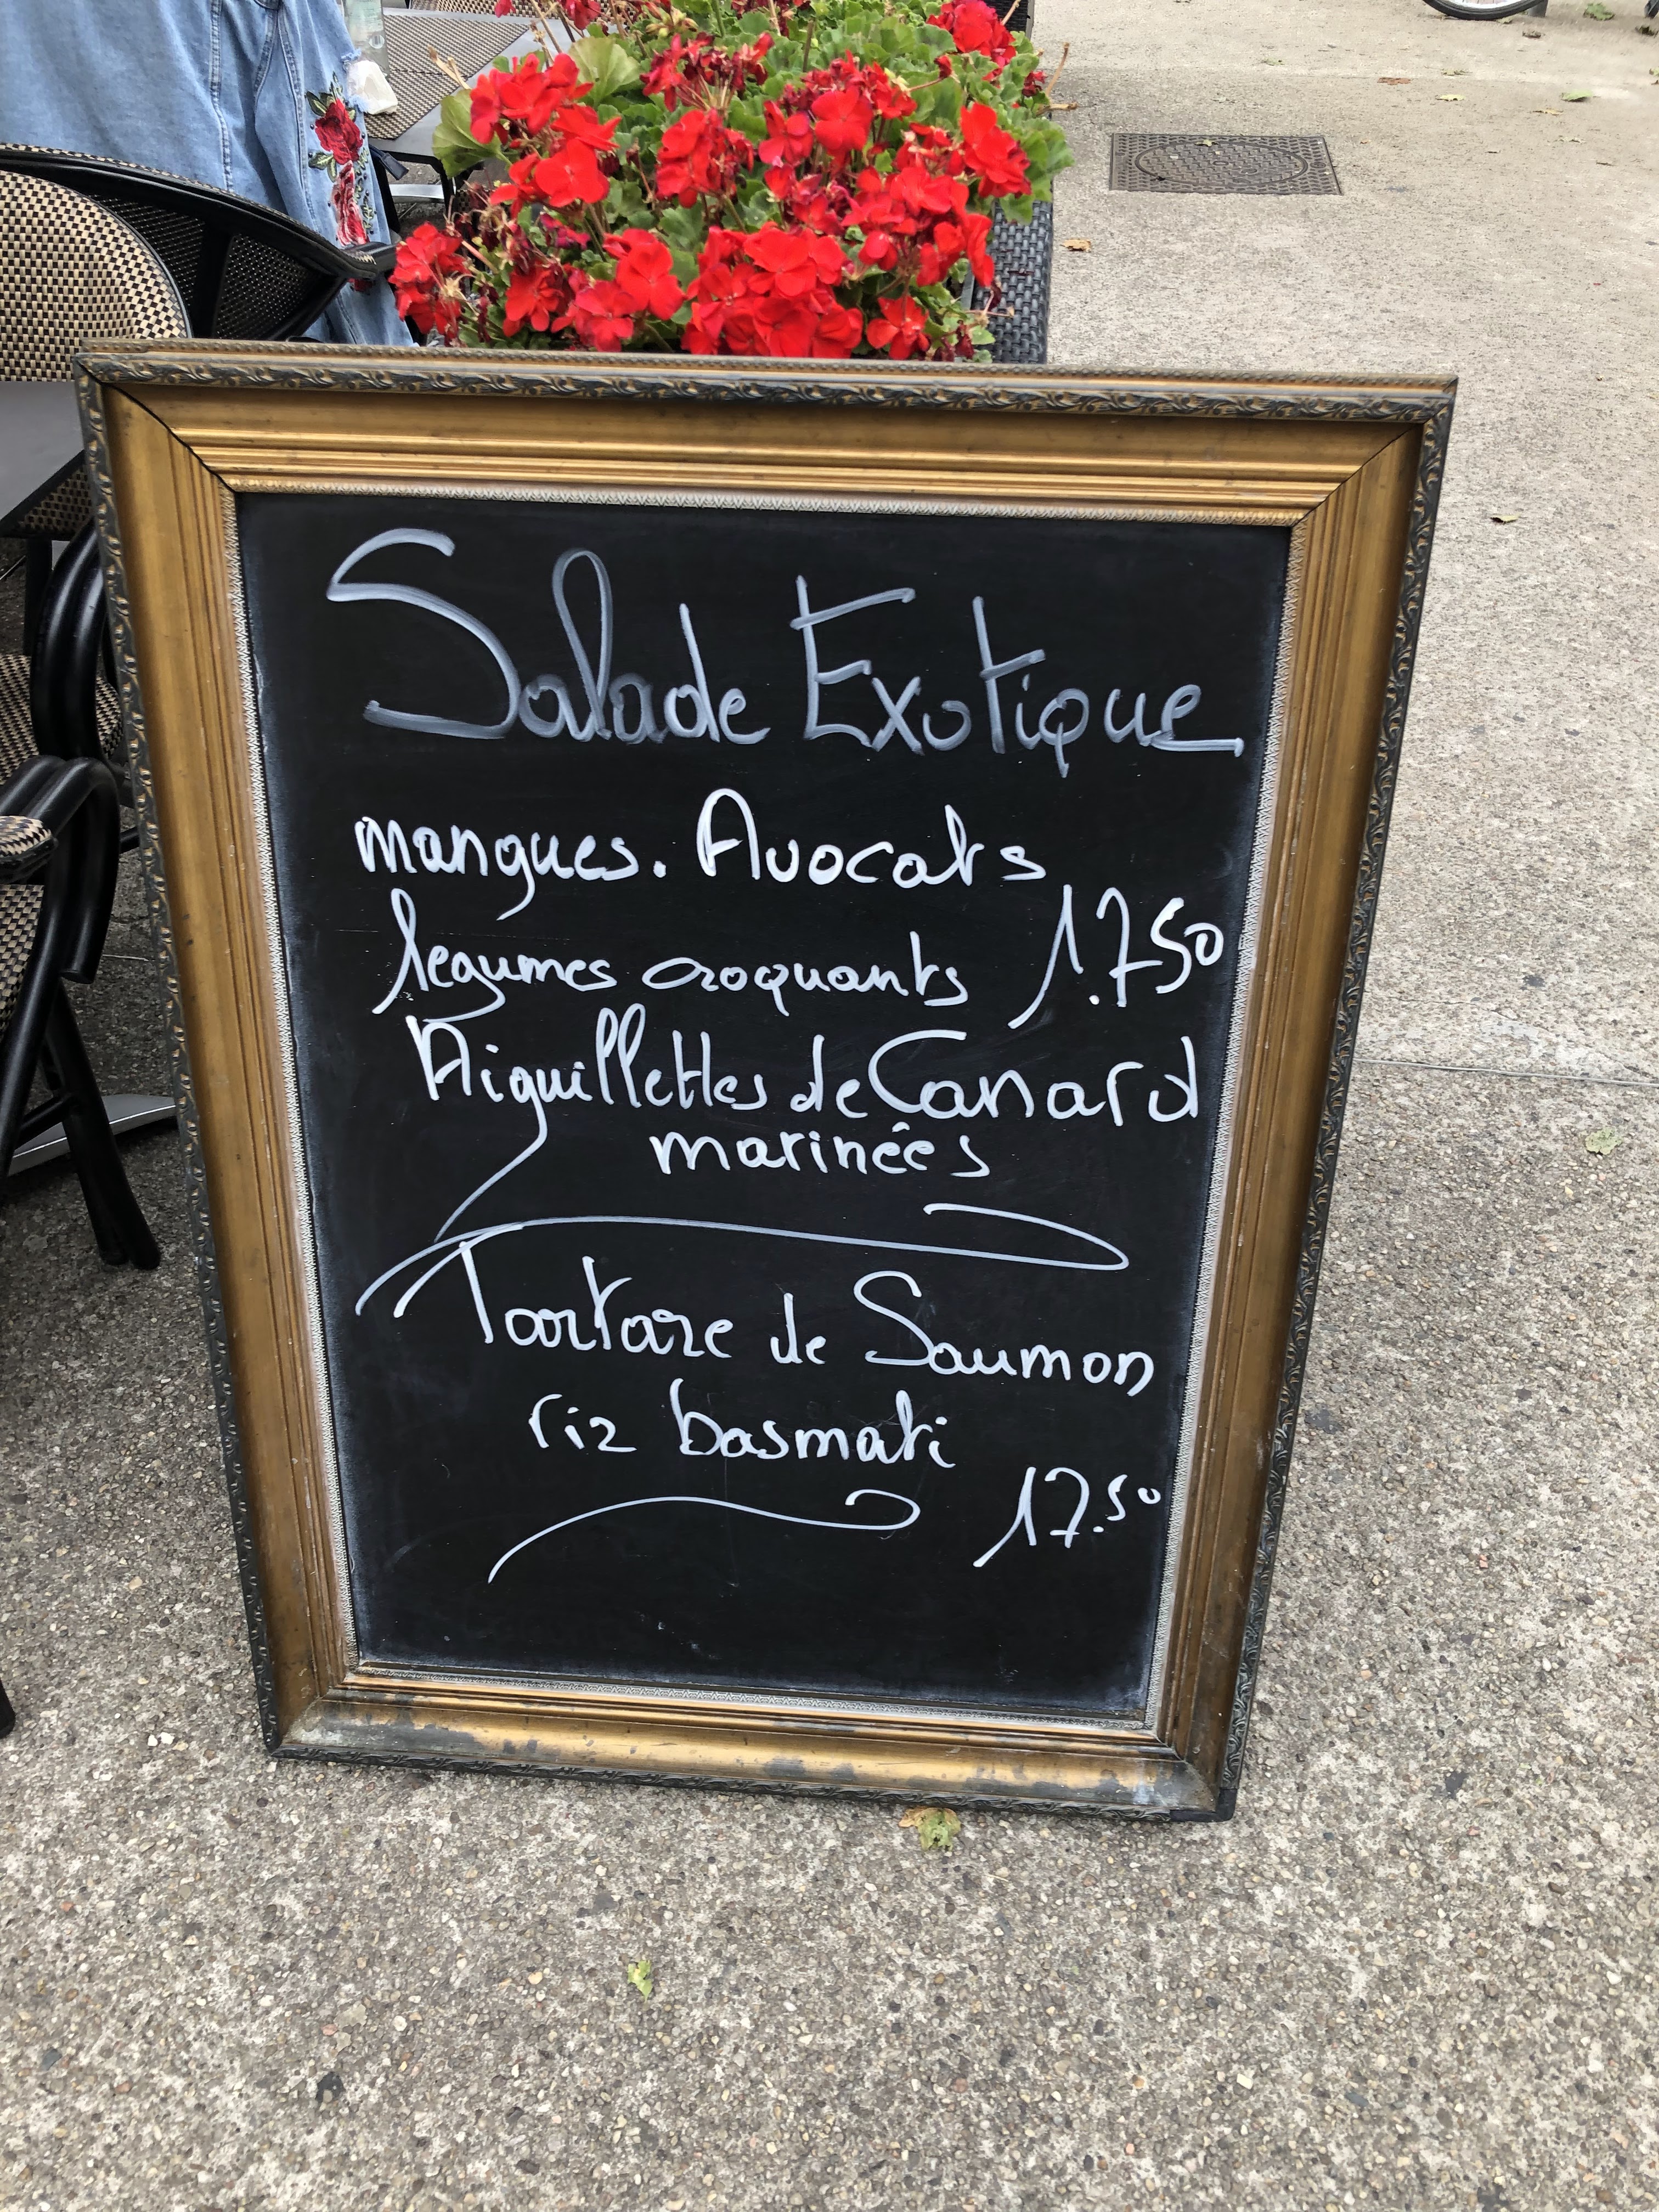 Salade Exotique
mangues. Avocats
legumes croquants 17.50
Aiguillettes de Canard
marinées
Tartare de Saumon
riz basmati
17.50